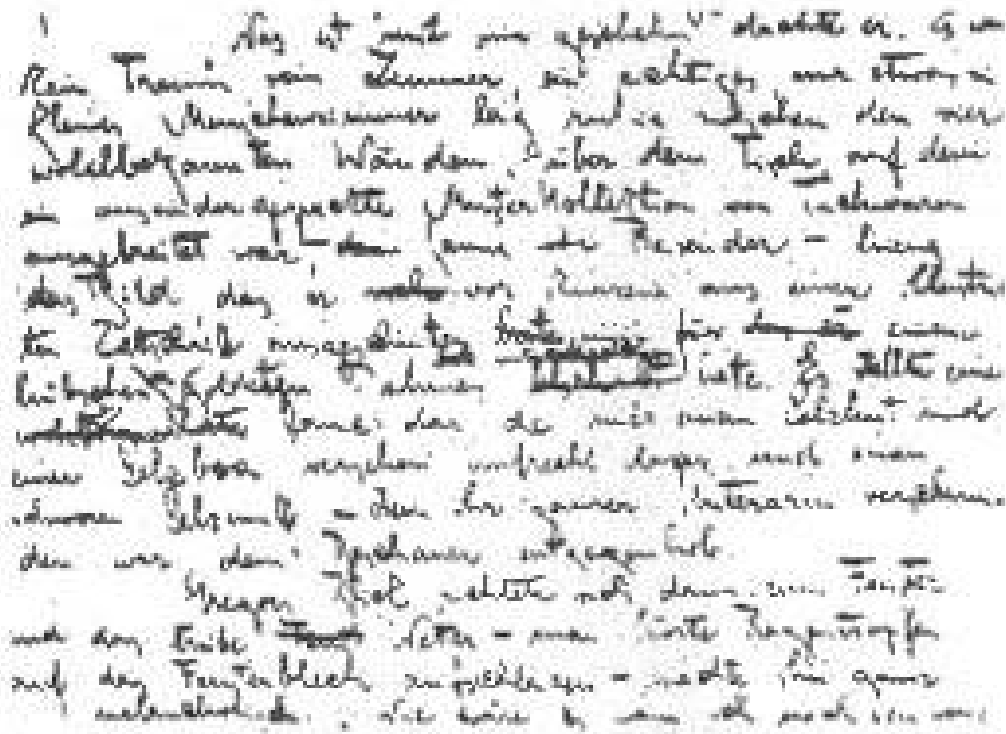 Was ist mit mir geschehen" dachte er. Es war
kein Traum, sein Zimmer, ein richtiges nur etwas zu
kleines Menschenzimmer lag ruhig zwischen den vier
wohlbekannten Wänden, über dem Tisch auf dem
eine auseinandergepackte Musterkollektion von Tuchwaren
ausgebreitet war – Samsa war Reisender – hieng
das Bild das er vor Kurzem aus einer illustrier
ten Zeitschrift ausgeschnitten
hübschen Rahmen hatte. Es stellte eine
Dame dar die mit einem Pelzhut und
einer Pelzboa versehen aufrecht dasass und einen
schweren Pelzmuff in dem ihr ganzer Unterarm verschwun
den war dem Beschauer entgegenhob.
Gregors Blick richtete sich dann zum Fenster
und das trübe Wetter – man hörte Regentropfen
auf das Fensterblech aufschlagen – machte ihn ganz
melancholisch. Wie wäre es wenn ich noch ein wenig